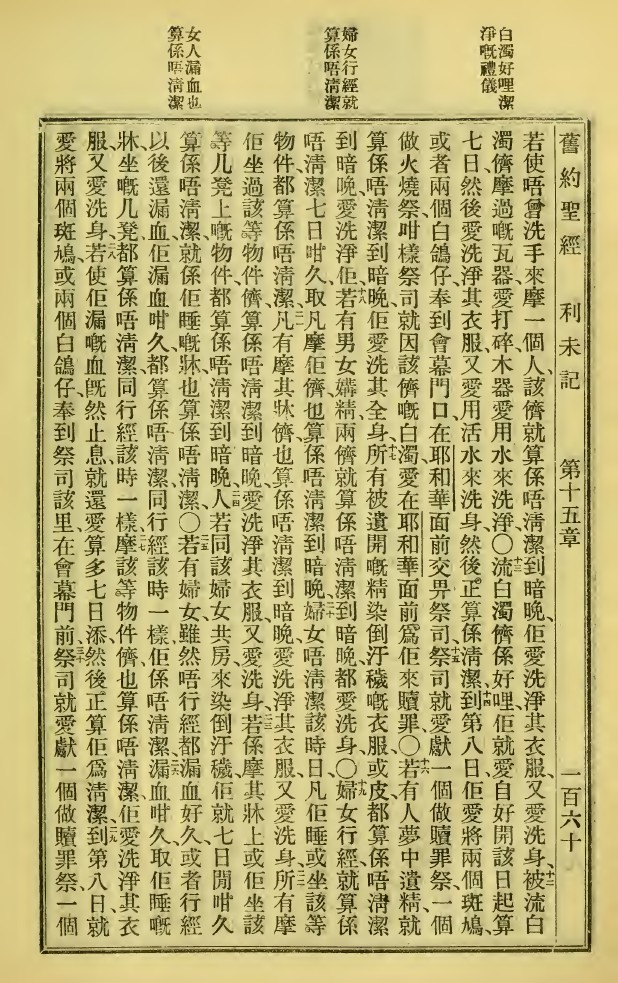 白濁好哩潔
淨嘅禮儀
婦女行經就
算係唔清潔
女人漏血也
算係唔清潔
舊約聖經 利未記 第十五章 一百六十
若使唔曾洗手來摩一個人、該儕就算係唔清潔到暗晚、佢愛洗淨其衣服、又愛洗身、十二被流白
濁儕摩過嘅瓦器愛打碎、木器愛用水來洗淨、〇十三流白濁儕係好哩、佢就愛自好開該日起算
七日、然後愛洗淨其衣服、又愛用活水來洗身、然後正算係清潔、十四到第八日佢愛將兩個斑鳩、
或者兩個白鴿仔、奉到會幕門口在耶和華面前交畀祭司、十五祭司就愛獻一個做贖罪祭、一個
做火燒祭、咁樣祭司就因該儕嘅白濁愛在耶和華面前爲佢來贖罪〇十六若有人夢中遺精、就
算係唔清潔到暗晚、佢愛洗其全身、十七所有被遺開嘅精染倒汙穢嘅衣服或皮都算係唔清潔
到暗晚、愛洗淨佢、十八若有男女媾精、兩儕就算係唔清潔到暗晚、都愛洗身、〇十九婦女行經就算係
唔清潔七日咁久、取凡摩佢儕也算係唔清潔到暗晚、二十婦女唔清潔該時日、凡佢睡或坐該等
物件、都算係唔清潔、二一凡有摩其牀儕也算係唔清潔到暗晚、愛洗淨其衣服、又愛洗身、二二所有摩
佢坐過該等物件儕算係唔清潔到暗晚、愛洗淨其衣服、又愛洗身、二三若係摩其牀上或佢坐該
等几凳上嘅物件、都算係唔清潔到暗晚、二四人若同該婦女共房來染倒汙穢、佢就七日閒咁久
算係唔清潔、就係佢睡嘅牀也算係唔清潔、〇二五若有婦女雖然唔行經都漏血好久、或者行經
以後還漏血、佢漏血咁久、都算係唔清潔、同行經該時一樣、佢係唔清潔、二六漏血咁久、取佢睡嘅
牀、坐嘅几凳、都算係唔清潔、同行經該時一樣、二七摩該等物件儕也算係唔清潔、佢愛洗淨其衣
服、又愛洗身、二八若使佢漏嘅血既然止息、就還愛算多七日添、然後正算佢爲清潔、二九到第八日、就
愛將兩個斑鳩、或兩個白鴿仔、奉到祭司該里、在會幕門前、三十祭司就愛獻一個做贖罪祭、一個